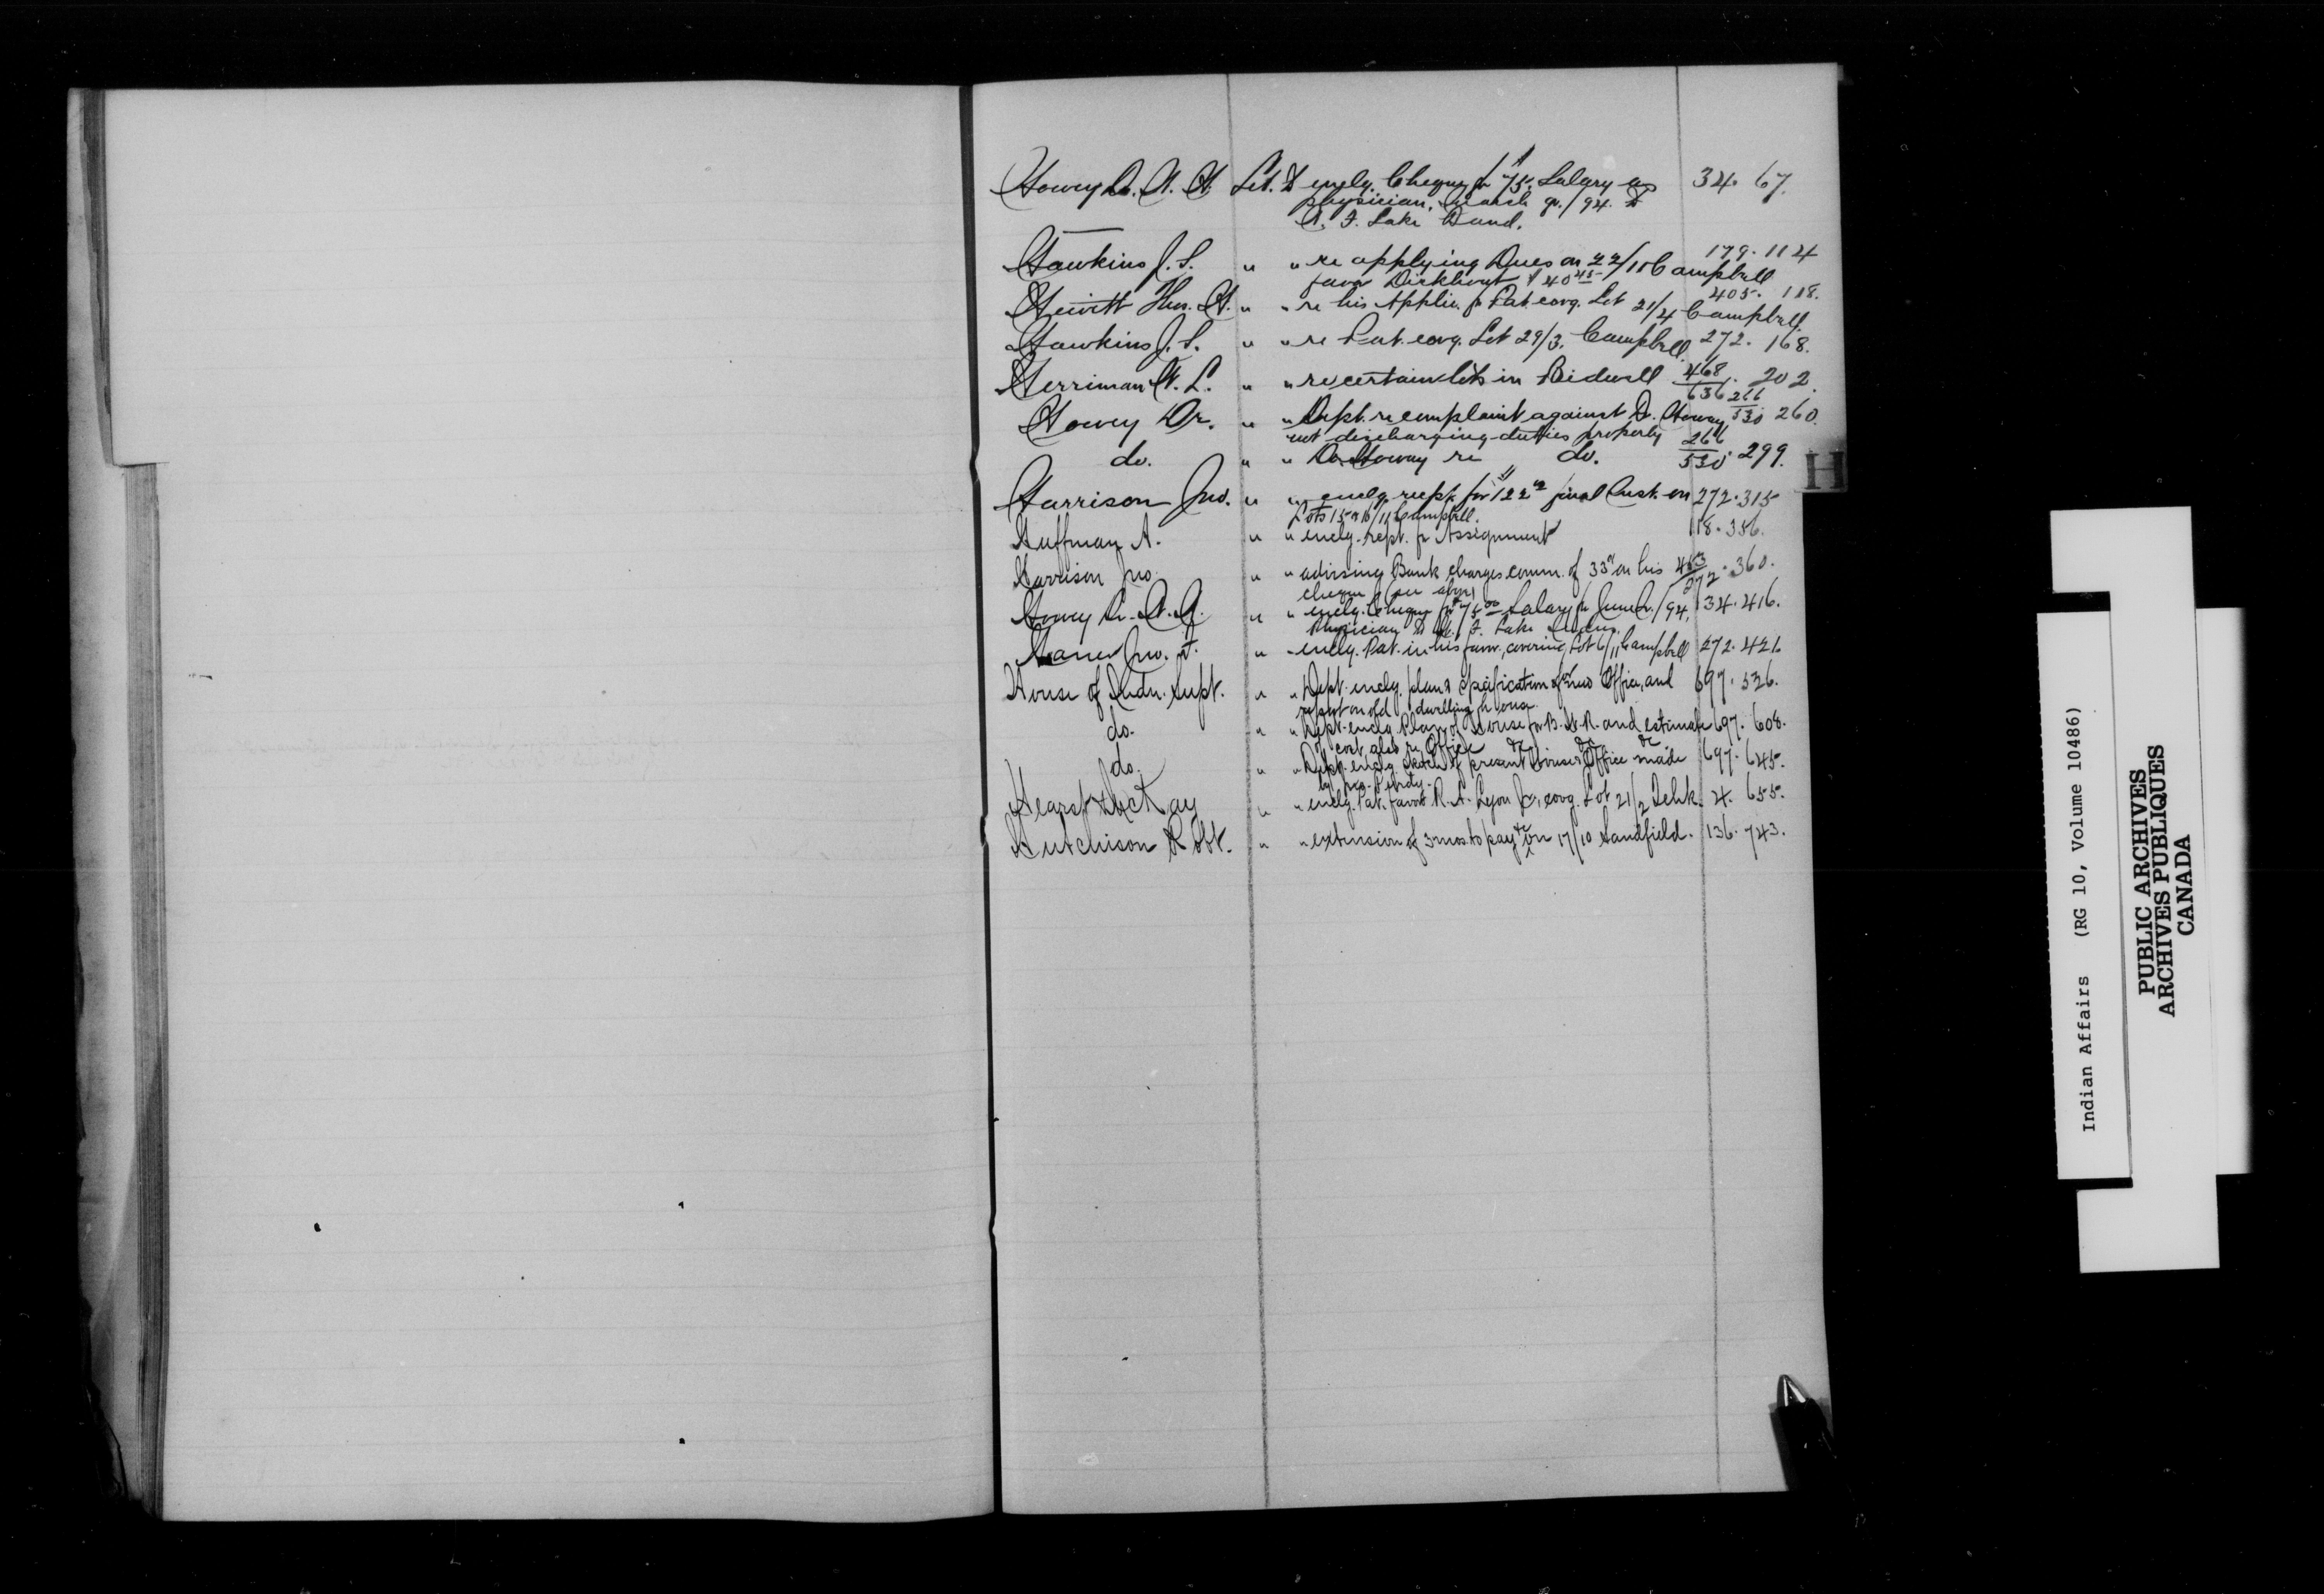 Howey Dr. R. H. Let. to enclg. Cheque for $75. Salary as 34. 67.
physician, March qr./94. to
W. F. Lake Band.
Hawkins J. S. " " re applying Dues on 22/11 Campbell 179. 114
favor Dickhout $40 45
Hewitt Thos. H. " " re his Applic. for Pat. covg. Lot 21/4 Campbell. 405. 118.
Hawkins J. S. " " re Pat. covg. Lot 29/3. Campbell. 272. 168.
Herriman W. L. " " re certain lots in Bidwell 468/636. 202.
Howey Dr. " " Dept. re complaint against Dr. Howey, 266/530 260.
not discharging duties properly
do. " " Dr. Howey re do. 266/530 299.
Harrison Jno. " " enclg. recpt. for $122 final Inst. on 272. 315
Lots 15 & 16/11 Campbell.
Huffman A. " " enclg. rept. for Assignment 118. 356.
Harrison Jno. " " advising Bank charges comm. of 33 on his 463/272. 360.
cheque (see above)
Howey Dr. R. H. " " enclg. Cheque for $75 00 Salary for June Qr./94, 34. 416.
Physician to W. F. Lake
Jno. " " enclg. Pat. in his favor, covering Lot 6/11 Campbell 272. 421
House of Indn. Supt. " " Dept. enclg. plan & specification for new Office, and 697. 526.
report on old dwelling house.
do. " " Dept. enclg. Plan of House for B. W. R. and estimate 697. 608.
of cost also re Office &c &c &c
do. " " Dept. enclg. sketch of present House & Office made 697. 645.
by
Hearst & McKay " " enclg. Pat. favor R. A. Lyon Jr. covg. Lot 21/2 Tehk. 4. 655.
Hutchison Robt. " " extension of 3 mos to pay &c on 17/10 Sandfield. 136. 743.
H
Indian Affairs (RG 10, Volume 10486)
PUBLIC ARCHIVES
ARCHIVES PUBLIQUES
CANADA